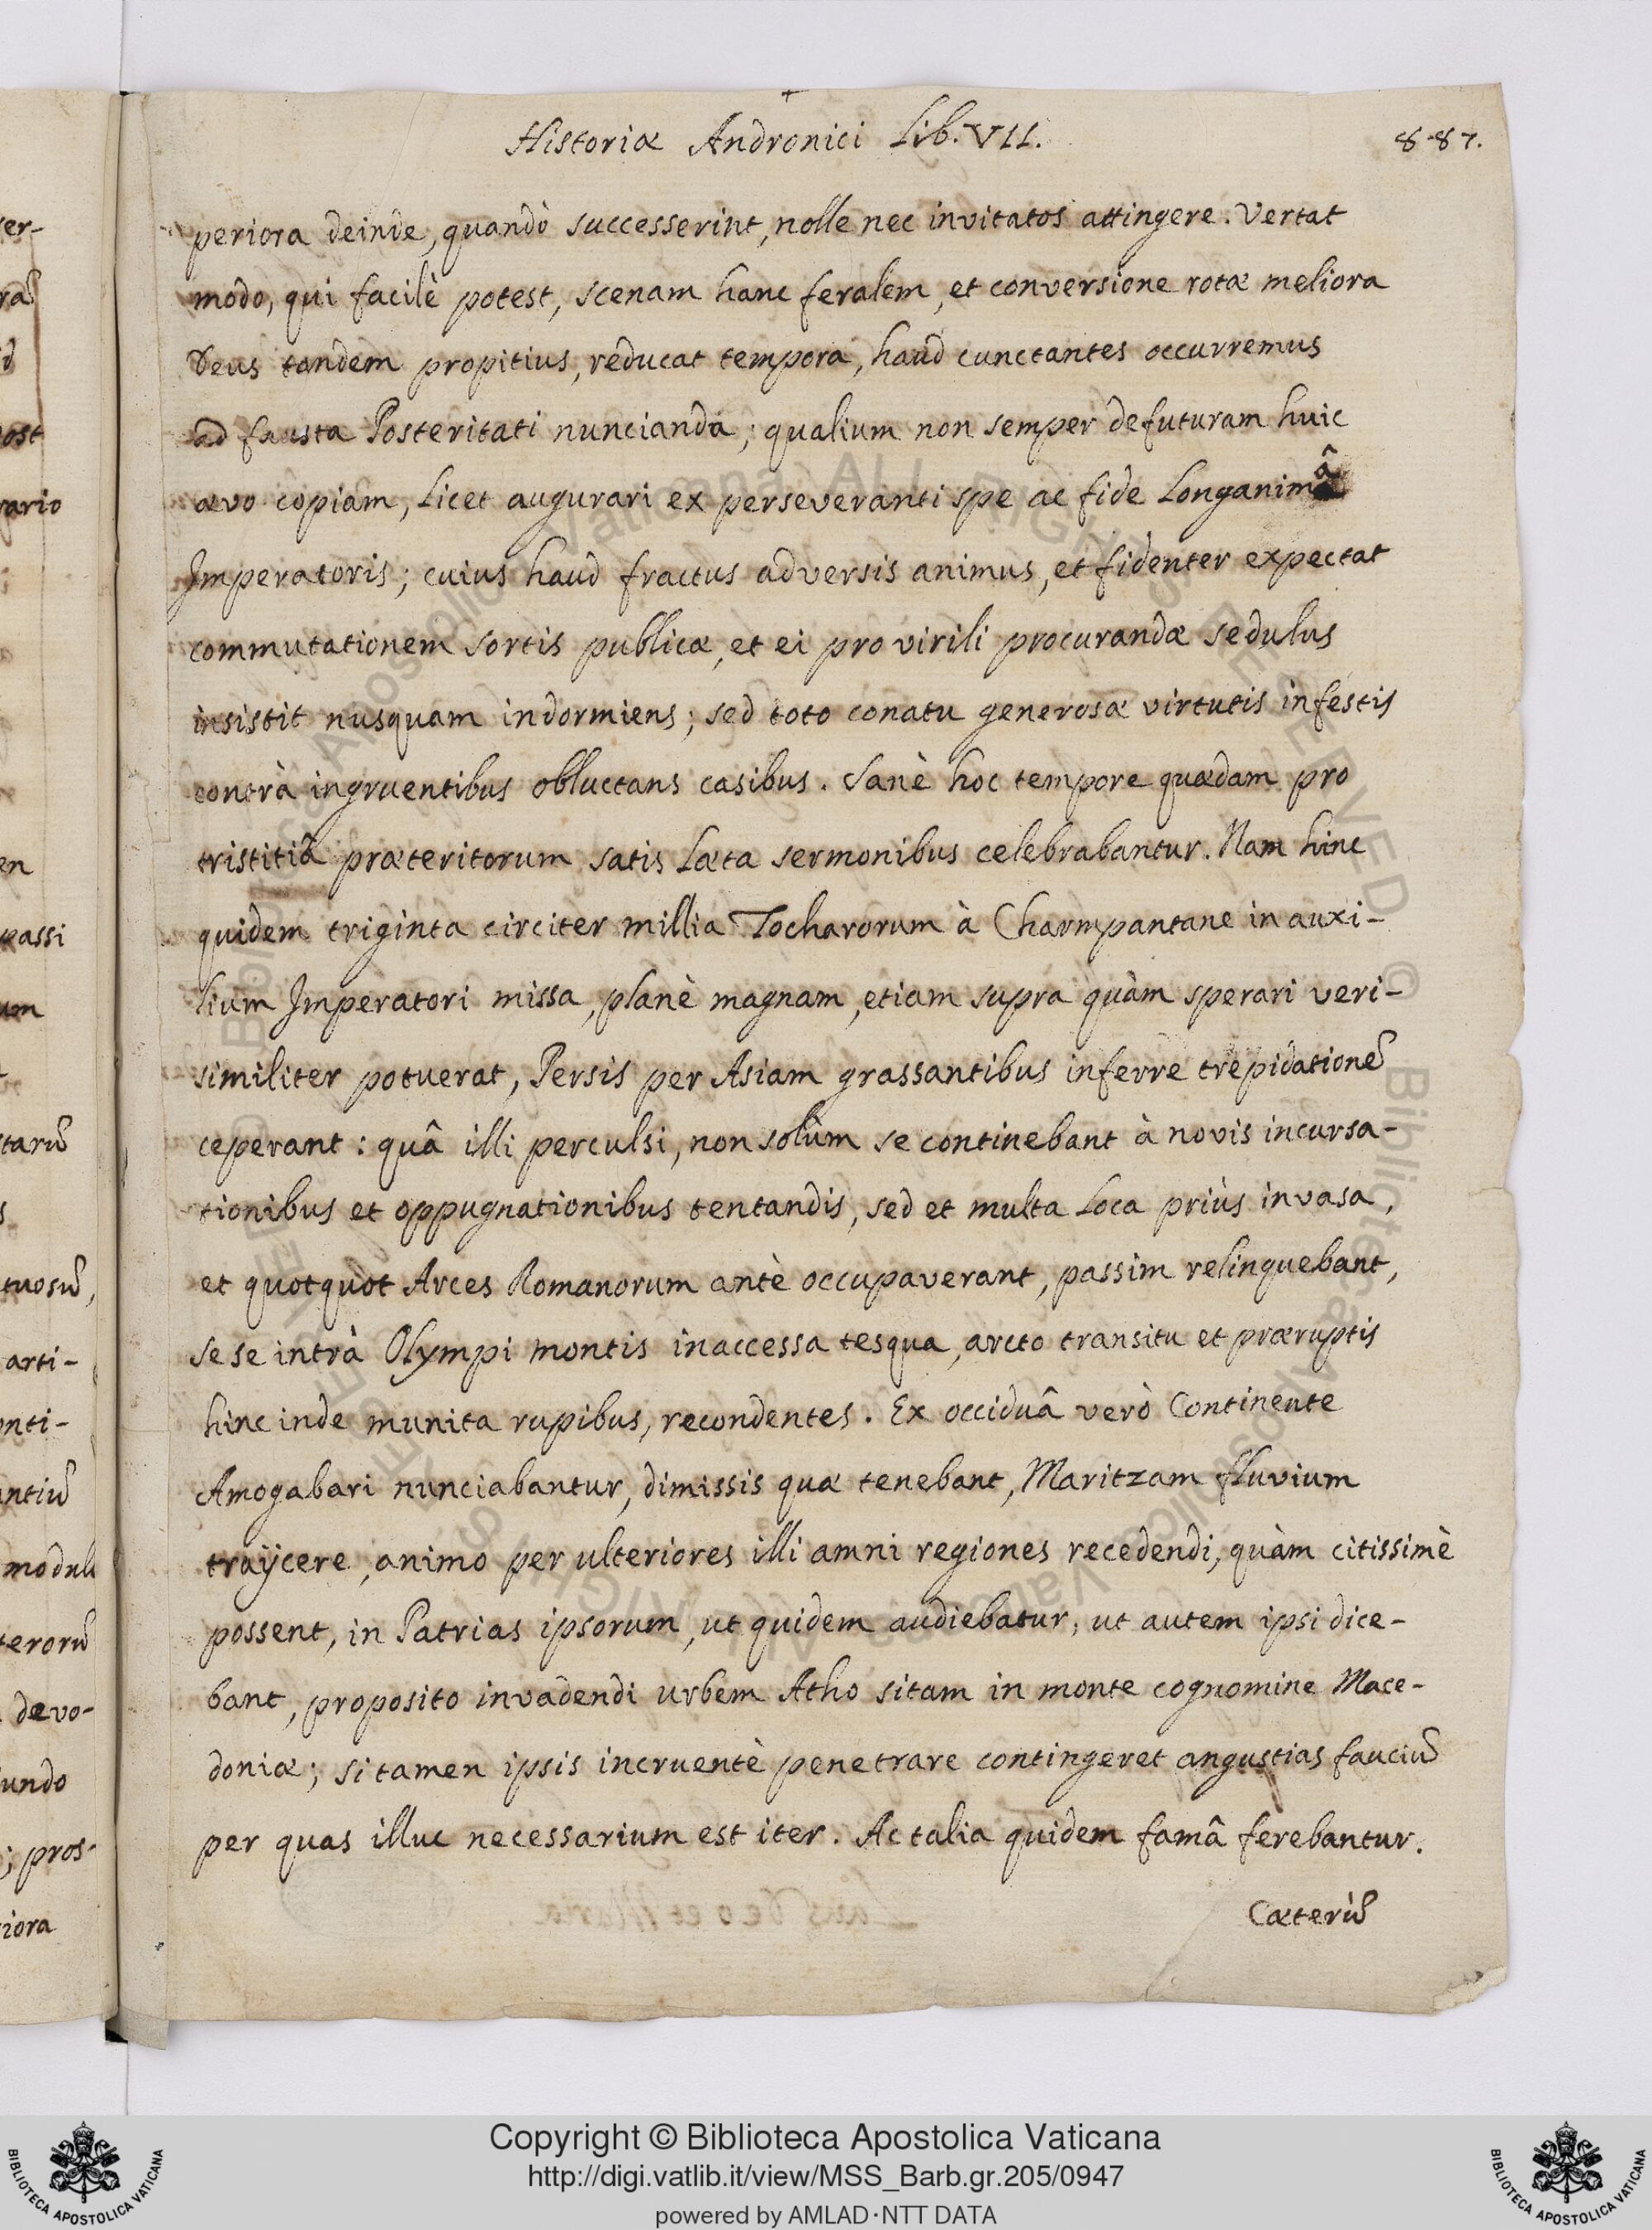 Historiæ Andronici Lib. VII.
887.
periora deinde, quandò successerint, nolle nec invitatos attingere. Vertat
modo, qui facilè potest, scenam hanc feralem, et conversione rotæ meliora
Deus tandem propitius, reducat tempora, haud cunctantes occurremus
ad fausta Posteritati nuncianda; qualium non semper defuturam huic
ævo copiam, licet augurari ex perseveranti spe ac fide Longanimâ
Imperatoris; cuius haud fractus adversis animus, et fidenter expectat
commutationem sortis publicæ, et ei pro virili procurandæ sedulus
insistit nusquam indormiens; sed toto conatu generosæ virtutis infestis
contrà ingruentibus obluctans casibus. Sanè hoc tempore quædam pro
tristitiâ præteritorum satis Læta sermonibus celebrabantur. Nam hinc
quidem triginta circiter millia Tocharorum à Charmpantane in auxi-
lium Imperatori missa, planè magnam, etiam supra quàm sperari veri-
similiter potuerat, Persis per Asiam grassantibus inferre trepidationẽ
ceperant: quâ illi perculsi, non solùm se continebant à novis incursa-
tionibus et oppugnationibus tentandis, sed et multa Loca priùs invasa,
et quotquot Arces Romanorum antè occupaverant, passim relinquebant,
sese intrà Olympi montis inaccessa tesqua, arcto transitu et præruptis
hinc inde munita rupibus, recondentes. Ex occiduâ verò Continente
Amogabari nunciabantur, dimissis quæ tenebant, Maritzam fluvium
traÿcere, animo per ulteriores illi amni regiones recedendi, quàm citissimè
possent, in Patrias ipsorum, ut quidem audiebatur; ut autem ipsi dice-
bant, proposito invadendi urbem Atho sitam in monte cognomine Mace-
doniæ; si tamen ipsis incruentè penetrare contingeret angustias fauciũ
per quas illuc necessarium est iter. Ac talia quidem famâ ferebantur.
Cæterũ
er-
rã
id
ost
rario
en
passi
um
tarũ
tuosũ,
arti-
onti-
antiũ
modul
terorũ
devo-
undo
; pros-
iora
Copyright © Biblioteca Apostolica Vaticana
http://digi.vatlib.it/view/MSS_Barb.gr.205/0947
powered by AMLAD·NTT DATA
BIBLIOTECA APOSTOLICA VATICANA
BIBLIOTECA APOSTOLICA VATICANA